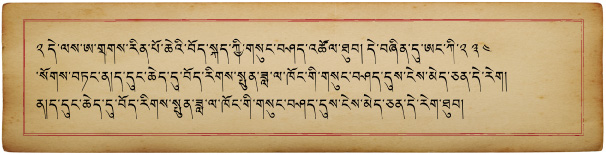 ༢ དེ་ལས་ཨ་གྲགས་རིན་པོ་ཆེའི་བོད་སྐད་ཀྱི་གསུང་བཤད་འཚོལ་ཐུབ། དེ་བཞིན་དུ་ཨང་ཀི་༢ ༣ ༤
་སོགས་བཏང་ན།ད་དུང་ཆེད་དུ་བོད་རིགས་སྤུན་ཟླ་ལ་ཁོང་གི་གསུང་བཤད་དུས་ངེས་མེད་ཅན་དེ་རེག།
ན།ད་དུང་ཆེད་དུ་བོད་རིགས་སྤུན་ཟླ་ལ་ཁོང་གི་གསུང་བཤད་དུས་ངེས་མེད་ཅན་དེ་རེག་ཐུབ།